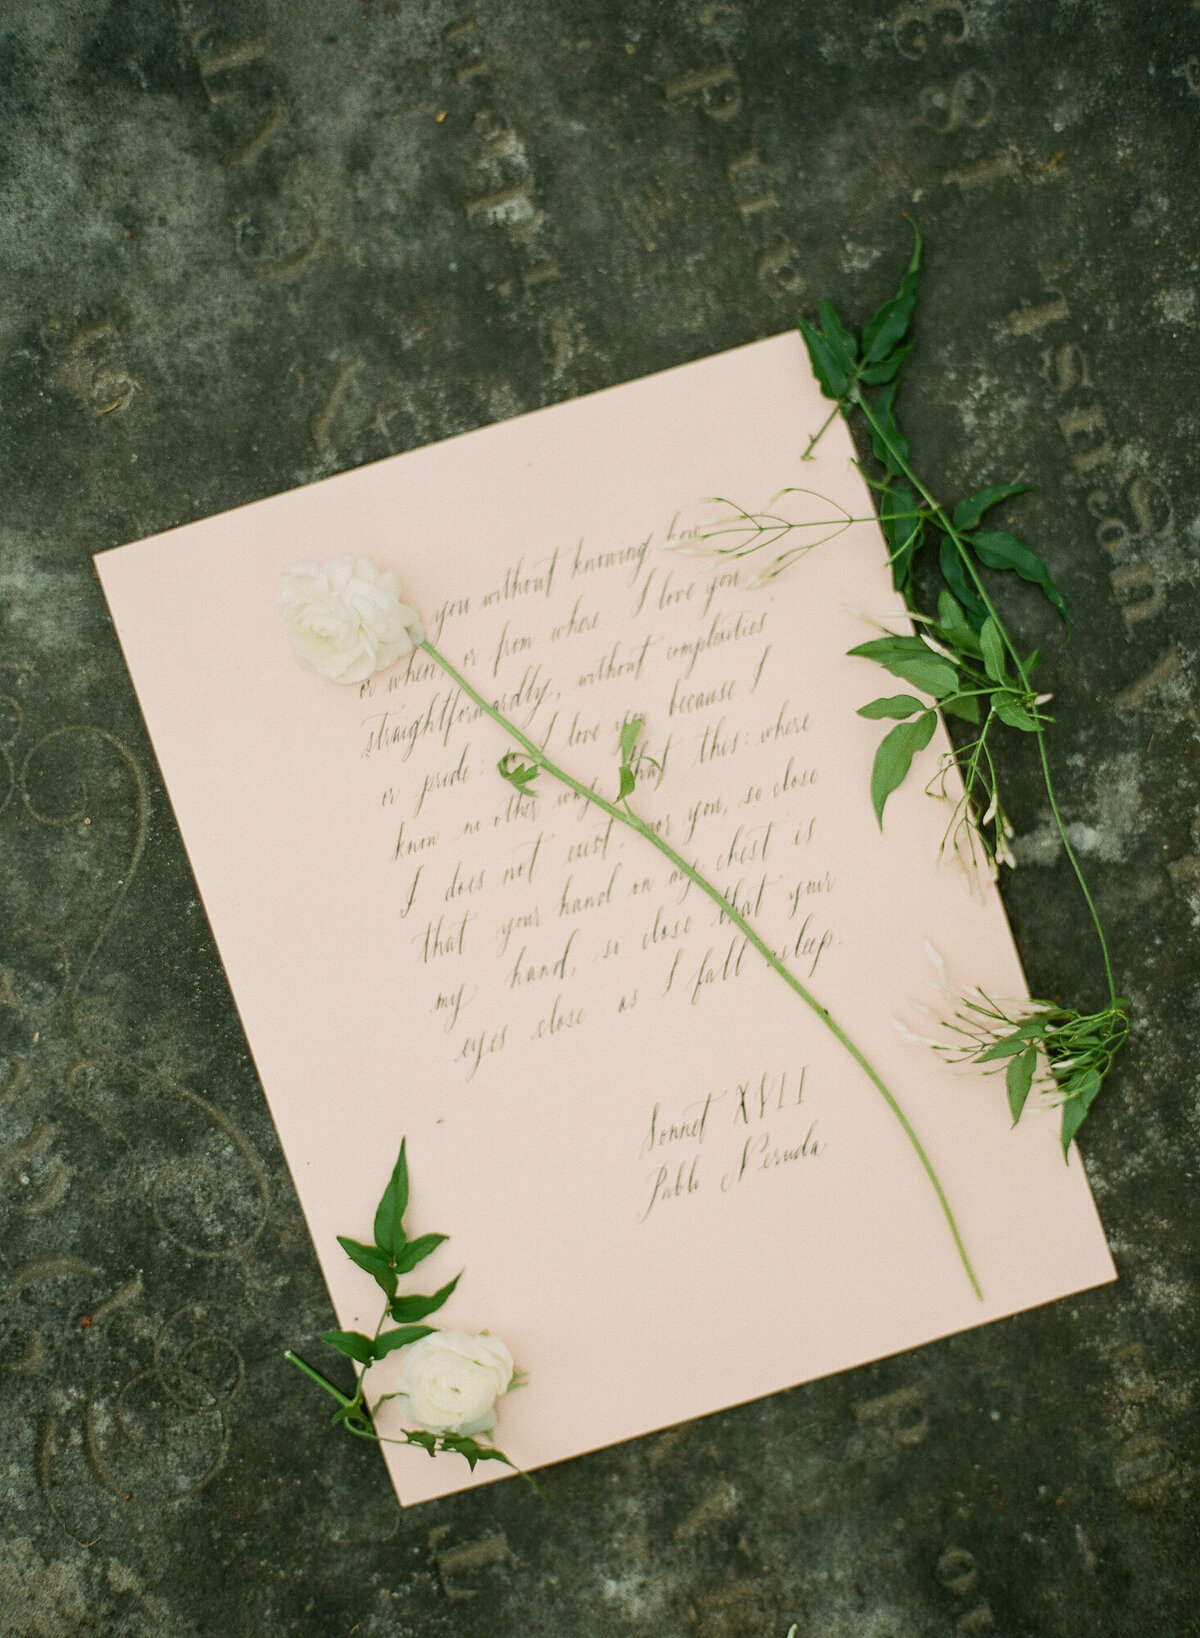 you without knowing how
or when, or from where. I love you
straightforwardly, without complexities
or pride; I love you because I
know no other way that this: where
I does not exist, nor you, so close
that your hand on my chest is
my hand, so close that your
eyes close as I fall asleep.
Sonnet XVII
Pablo Neruda